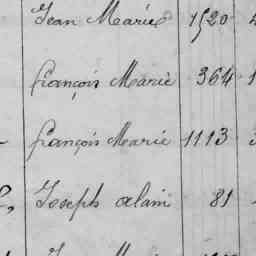 Jean Marie 1520
françois Marie 364
françois Marie 1113
Joseph alain 81